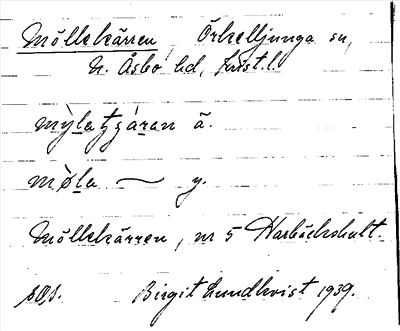 Möllekärren, Örkelljunga sn,
N. Åsbo hd, Krist. l.
mỳla tʒáran ä.
mø̀la ⁓ y.
Möllekärren, nr 5 Harbäckshult.
sös. Birgit Lundkvist 1939.